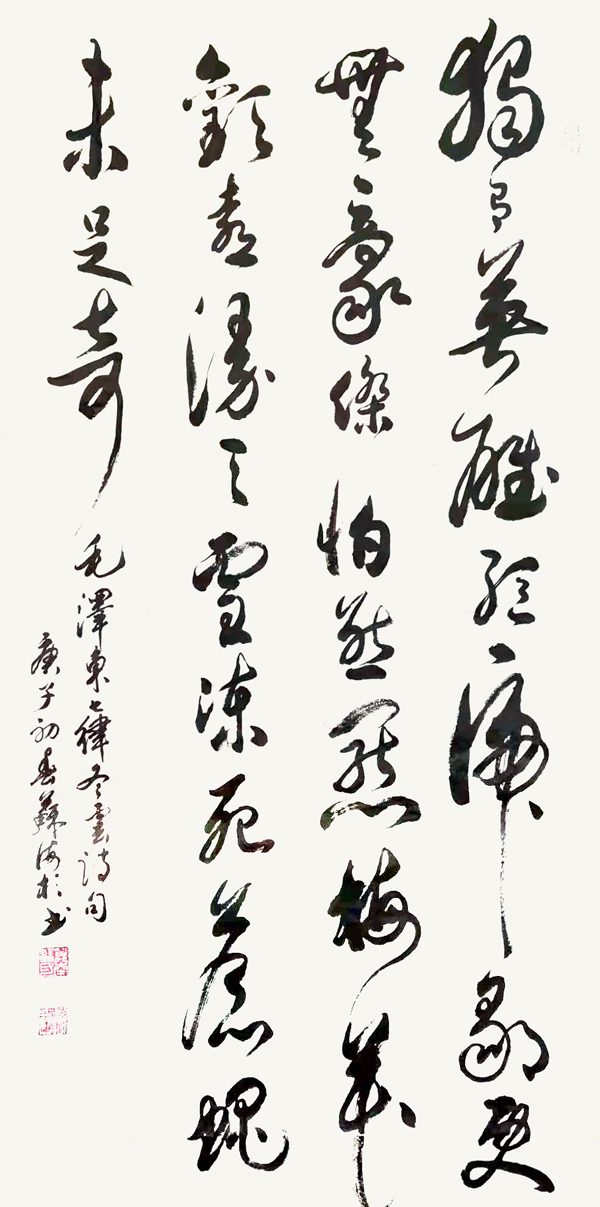 獨有英雄驅虎豹更
無豪傑怕熊羆梅花
歡喜漫天雪凍死蒼蠅
未足奇 毛澤東七律冬雲詩句
庚子初春蘇海書